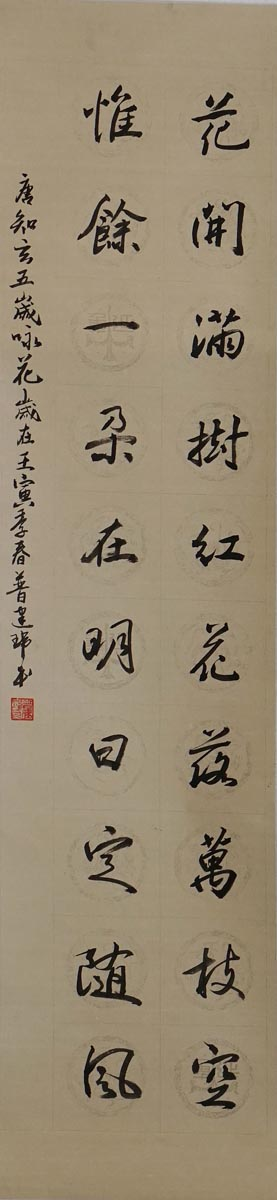 花開滿樹紅花落萬枝空
惟餘一朵在明日定隨風
唐知玄五歲咏花歲在壬寅季春普建瑞书